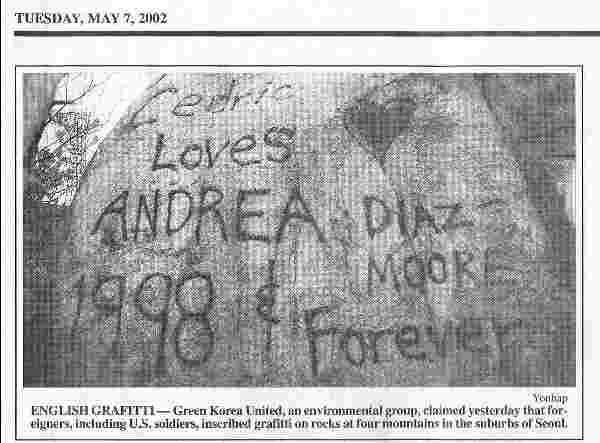 TUESDAY, MAY 7, 2002
Cedric
Loves
ANDREA DIAZ
MOORE
1998 & Forever
Yonhap
ENGLISH GRAFITTI — Green Korea United, an environmental group, claimed yesterday that for-
eigners, including U.S. soldiers, inscribed grafitti on rocks at four mountains in the suburbs of Seoul.